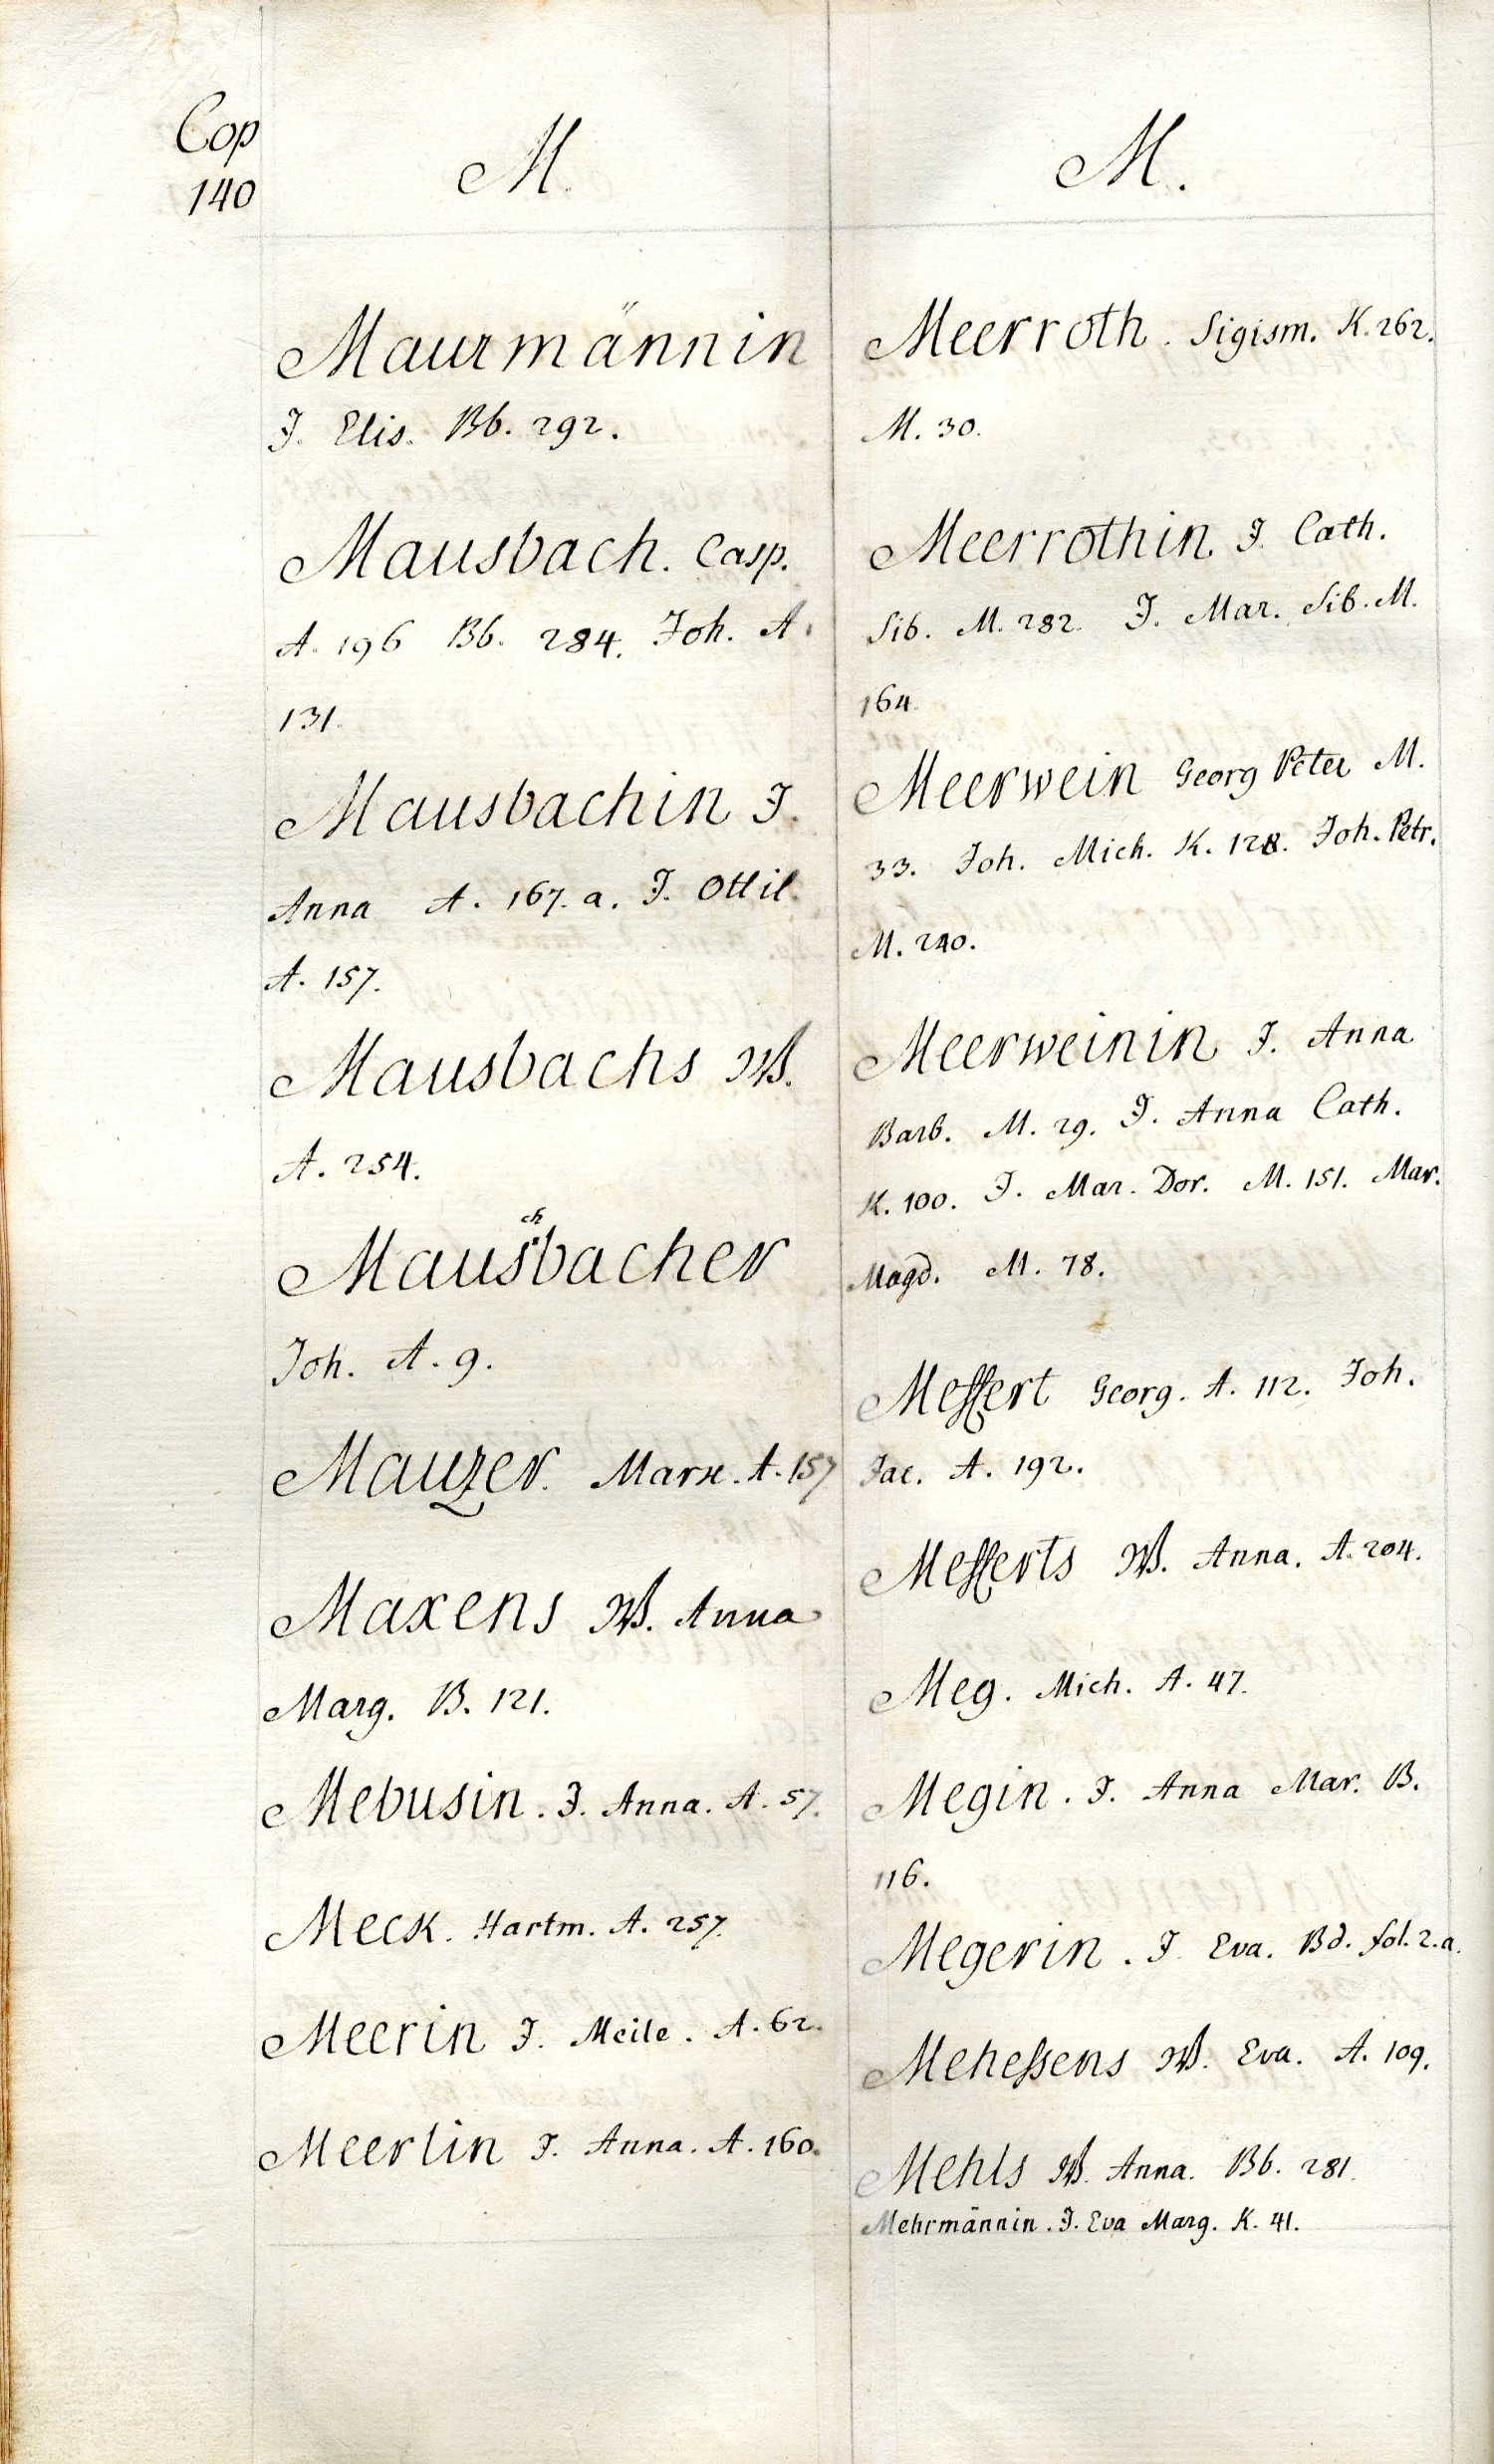 Cop
140
M.
Maurmännin
J. Elis. Bb. 292.
Mausbach. Casp.
A. 196 Bb. 284. Joh. A.
131.
Mausbachin J.
Anna A. 167. a. J. Ottil.
A. 157.
Mausbachs W.
A. 254.
ch
Mausbacher
Joh. A. 9.
Mauzer. Marx. A. 157
Maxens W. Anna
Marg. B. 121.
Mebusin. J. Anna. A. 57.
Meck. Hartm. A. 257.
Meerin J. Meile. A. 62.
Meerlin J. Anna. A. 160.
M.
Meerroth. Sigism. K. 262.
M. 30.
Meerrothin J. Cath.
Sib. M. 282. J. Mar. Sib. M.
164.
Meerwein Georg Peter M.
33. Joh. Mich. K. 128. Joh. Petr.
M. 240.
Meerweinin J. Anna
Barb. M. 29. J. Anna Cath.
K. 100. J. Mar. Dor. M. 151. Mar.
Magd. M. 78.
Meffert Georg. A. 112. Joh.
Jac. A. 192.
Mefferts W. Anna. A. 204.
Meg. Mich. A. 47.
Megin. J. Anna Mar. B.
116.
Megerin. J. Eva. Bd. fol. 2. a.
Meheßens W. Eva. A. 109.
Mehls W. Anna. Bb. 281.
Mehrmännin. J. Eva Marg. K. 41.